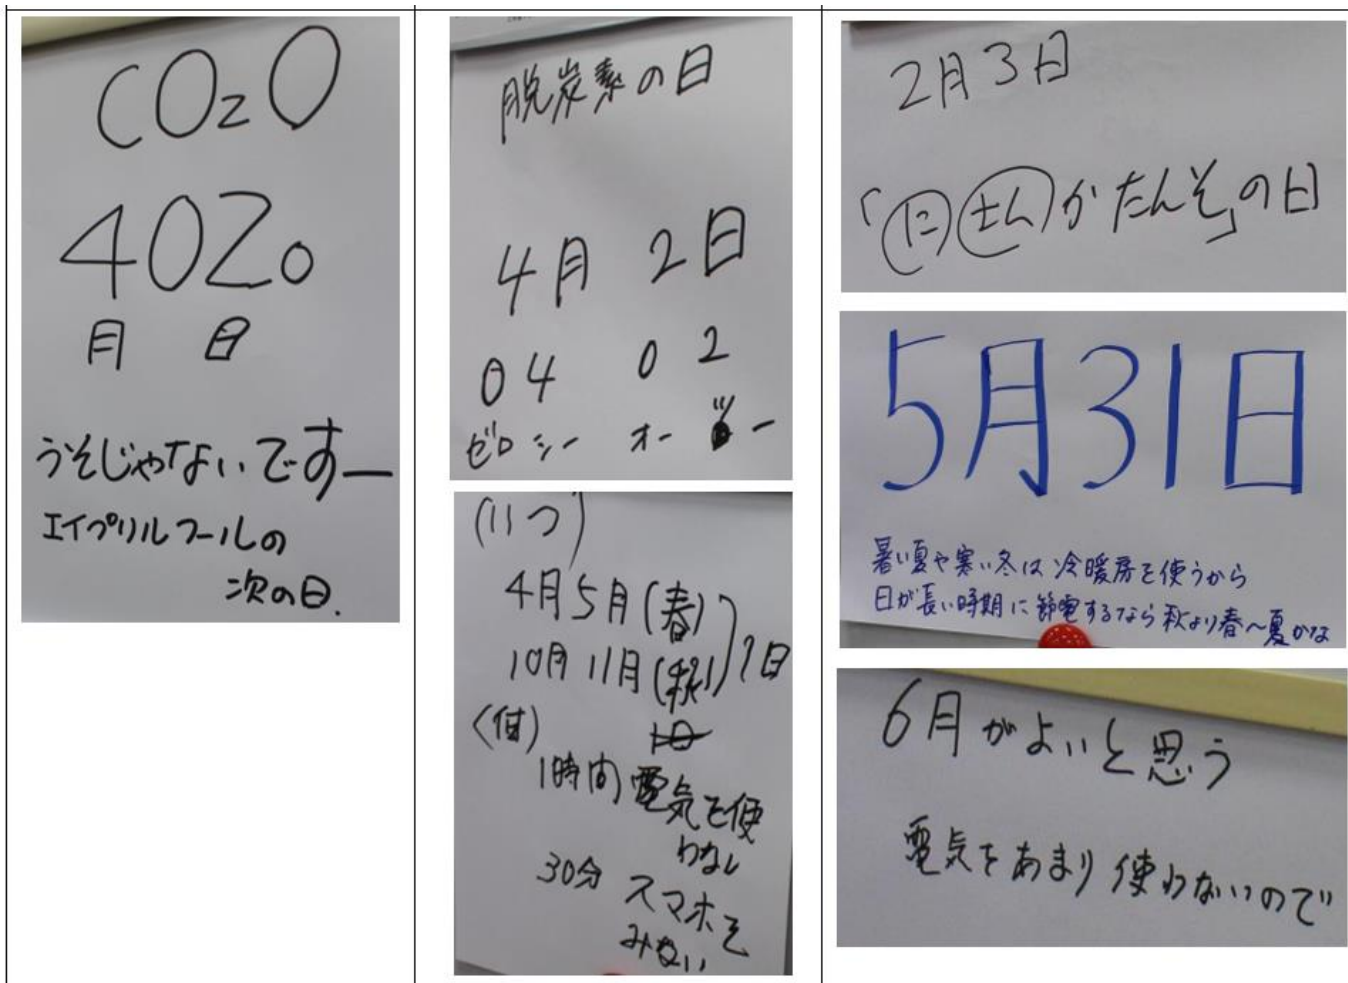 CO₂O
402o
月 日
うそじゃないですー
エイプリルフールの
次の日.
脱炭素の日
4月 2日
04 02
ゼロシー オーツー
(いつ)
4月5月(春)
10月11月(秋)
1日
(何)
1時間 電気を使
わない
30分 スマホを
みない
2月3日
「にさんかたんそ」の日
5月31日
暑い夏や寒い冬は冷暖房を使うから
日が長い時期に節電するなら秋より春〜夏かな
6月がよいと思う
電気をあまり使わないので